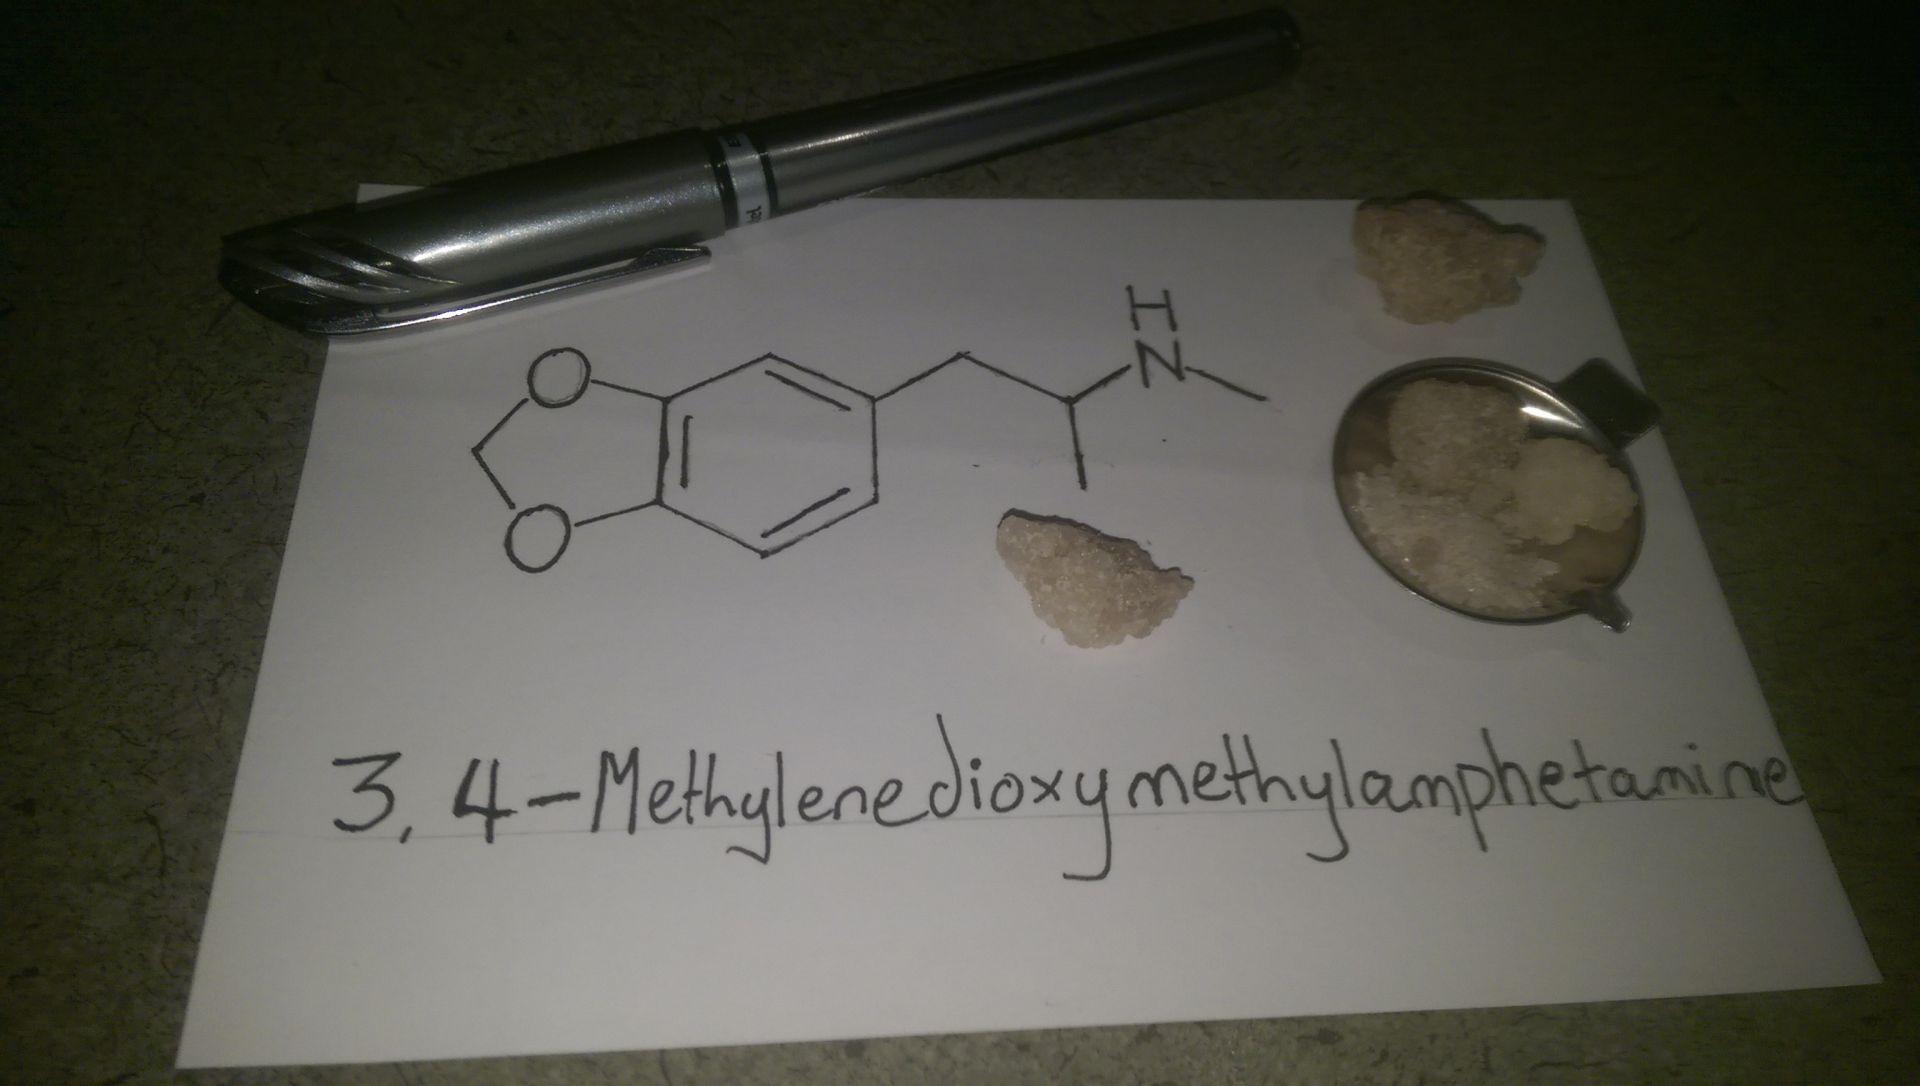 H
O N
O
3,4-Methylenedioxymethylamphetamine